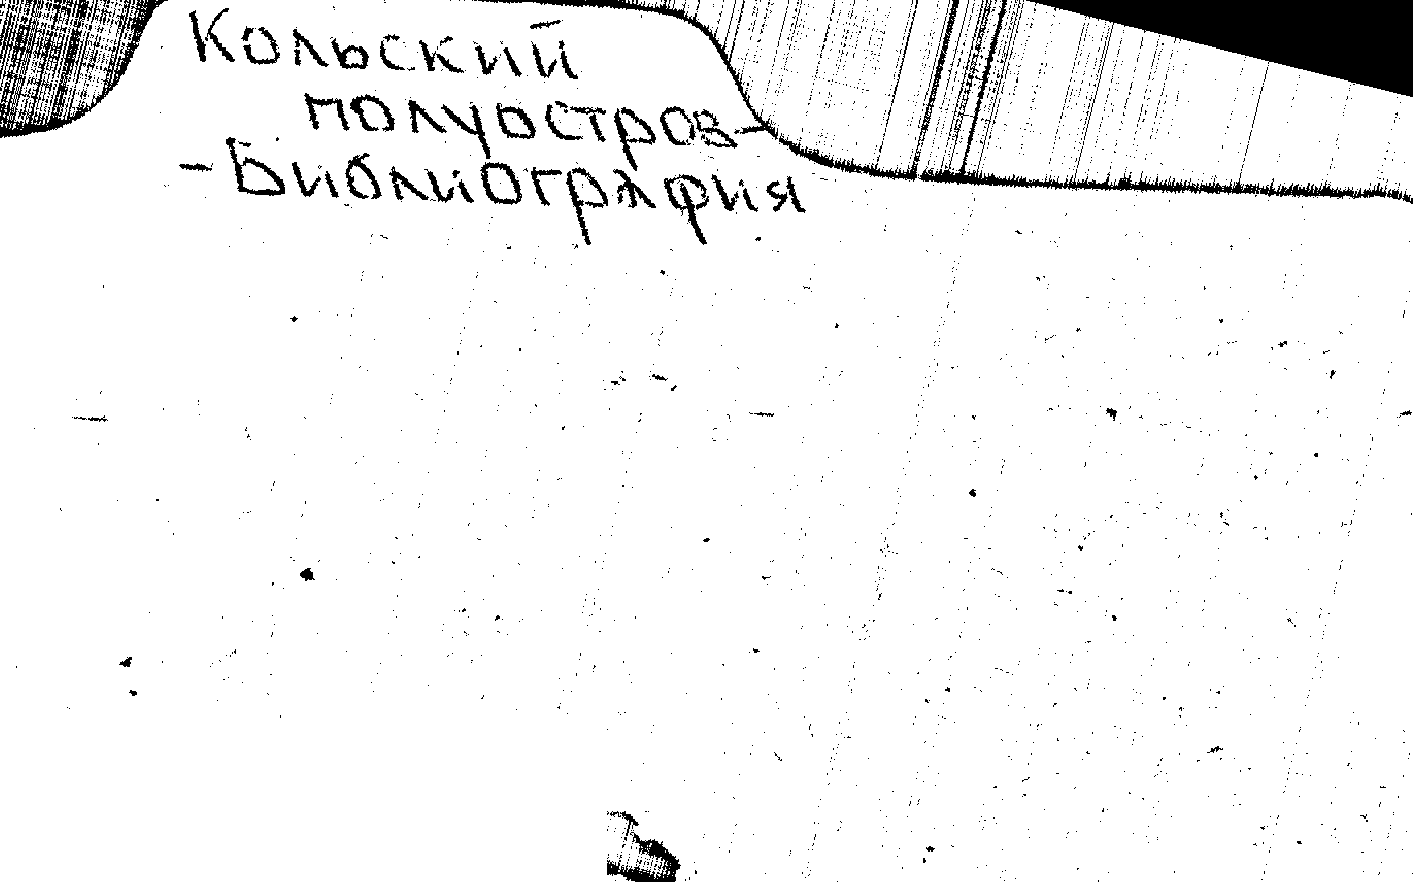 Кольский
полуостров-
- Библиография